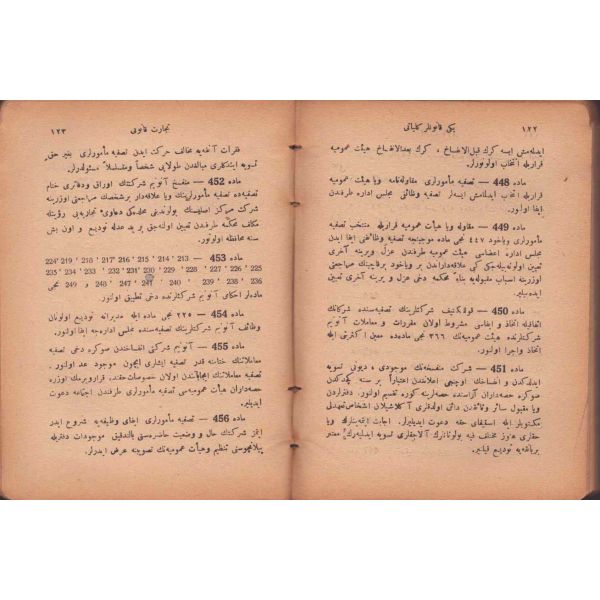 ١٢٢
يكی قانونلر كلياتی
ايدلەمش ايسه كرك قبل‌الانفساخ، كرك بعدالانفساخ هيئت عموميه
قراريله انتخاب اولونورلر.
ماده 448 — تصفيه مأمورلری مقاوله‌نامه ويا هيئت عموميه
قراريله انتخاب ايدلمامش ايسه‌لر تصفيه وظائفی مجلس اداره طرفندن
ايفا اولنور.
ماده 449 — مقاوله ويا هيأت عموميه قراريله منتخب تصفيه
مأمورلری وياخود ٤٤٧ نجی ماده موجبنجه تصفيه وظائفنی ايفا ايدن
مجلس اداره اعضاسی هيئت عموميه طرفندن عزل ويرينه آخری
تعيين اولونه‌بيله‌جكی كبی علاقه‌داراندن بر وياخود برقاچينك مراجعتی
اوزرينه اسباب مقبوله‌يه بناءً محكمه دخی عزل و يرينه آخری تعيين
ايده‌بيلير.
ماده 450 — قوللكتيف شركتلرينك تصفيه‌سنده شركانك
اتفاقيله اتخاذ و ايفاسی مشروط اولان مقررات و معاملات آنونيم
شركتلرنده هيئت عموميه‌نك ٣٦٦ نجی ماده‌ده معين اكثريتی ايله
اتخاذ واجرا اولنور.
ماده 451 — شركت منفسخه‌نك موجودی، ديونی تسويه
ايدلدكدن و انفساخك اوچنجی اعلانندن اعتباراً بر سنه كچدكدن
صوكره حصه‌داران آراسنده حصه‌لرينه كوره تقسيم اولنور. دفترلردن
ويا مقبول سائر وثائقدن دائن اولدقلری آكلاشيلان اشخاص تعهدلی
مكتوبلر ايله استيفای حقه دعوت ايديلير. اجابت ايتمه‌ينلرك ويا
١٢٣
تجارت قانونی
فقرات آنفه‌يه مخالف حركت ايدن تصفيه مأمورلری بغير حق
تسويه ايتدكلری مبالغدن طولايی شخصاً ومتسلسلاً مسئولدرلر.
ماده 452 — منفسخ آنونيم شركتك اوراق ودفاتری ختام
تصفيه‌ده تصفيه مأمورلرينك ويا علاقه‌دار برشخصك مراجعتی اوزرينه
شركت مركز اصليسنك بولنديغی محلده‌كی دعاوی تجاريه‌يی رؤيته
مكلف محكمه طرفندن تعيين اولنه‌جق بر يد عدله توديع و اون بش
سنه محافظه اولونور.
ماده 453 — 213 ’ 214 ’ 215 ’ 216 ’ 217 ’ 219 ’ 224’
225 ’ 226 ’ 227 ’ 228 ’ 229 ’ 230 ’ 231 ’ 232 ’ 233 ’ 234 ’ 235
236 ’ 238 ’ 239 ’ 240 ’ 241 ’ 247 ’ 248 و 249 نجی
ماده‌لر احكامی آنونيم شركتلرنده دخی تطبيق اولنور.
ماده 454 — ٢٢٥ نجی ماده ايله مديرانه توديع اولونان
وظائف آنونيم شركتلرينك تصفيه‌سنده مجلس اداره‌جه ايفا اولنور.
ماده 455 — آنونيم شركتی انفساخندن صوكره دخی تصفيه
معاملاتنك ختامنه قدر تصفيه ايشلری ايچون موجود عد اولنور.
تصفيه معاملاتنك ايجاباتندن اولان خصوصات حقنده، قراروبرمك اوزره
حصه‌داران هيأت عموميه‌سی تصفيه مأمورلری طرفندن اجتماعه دعوت
ايديلير.
ماده 456 — تصفيه مأمورلری ايفای وظيفه‌يه شروع ايدر
ايتمز شركتك حال و وضعيت حاضره‌سنی بالتدقيق موجودات دفتريله
بيلانچوسنی تنظيم وهيأت عموميه‌نك تصويبنه عرض ايدرلر.